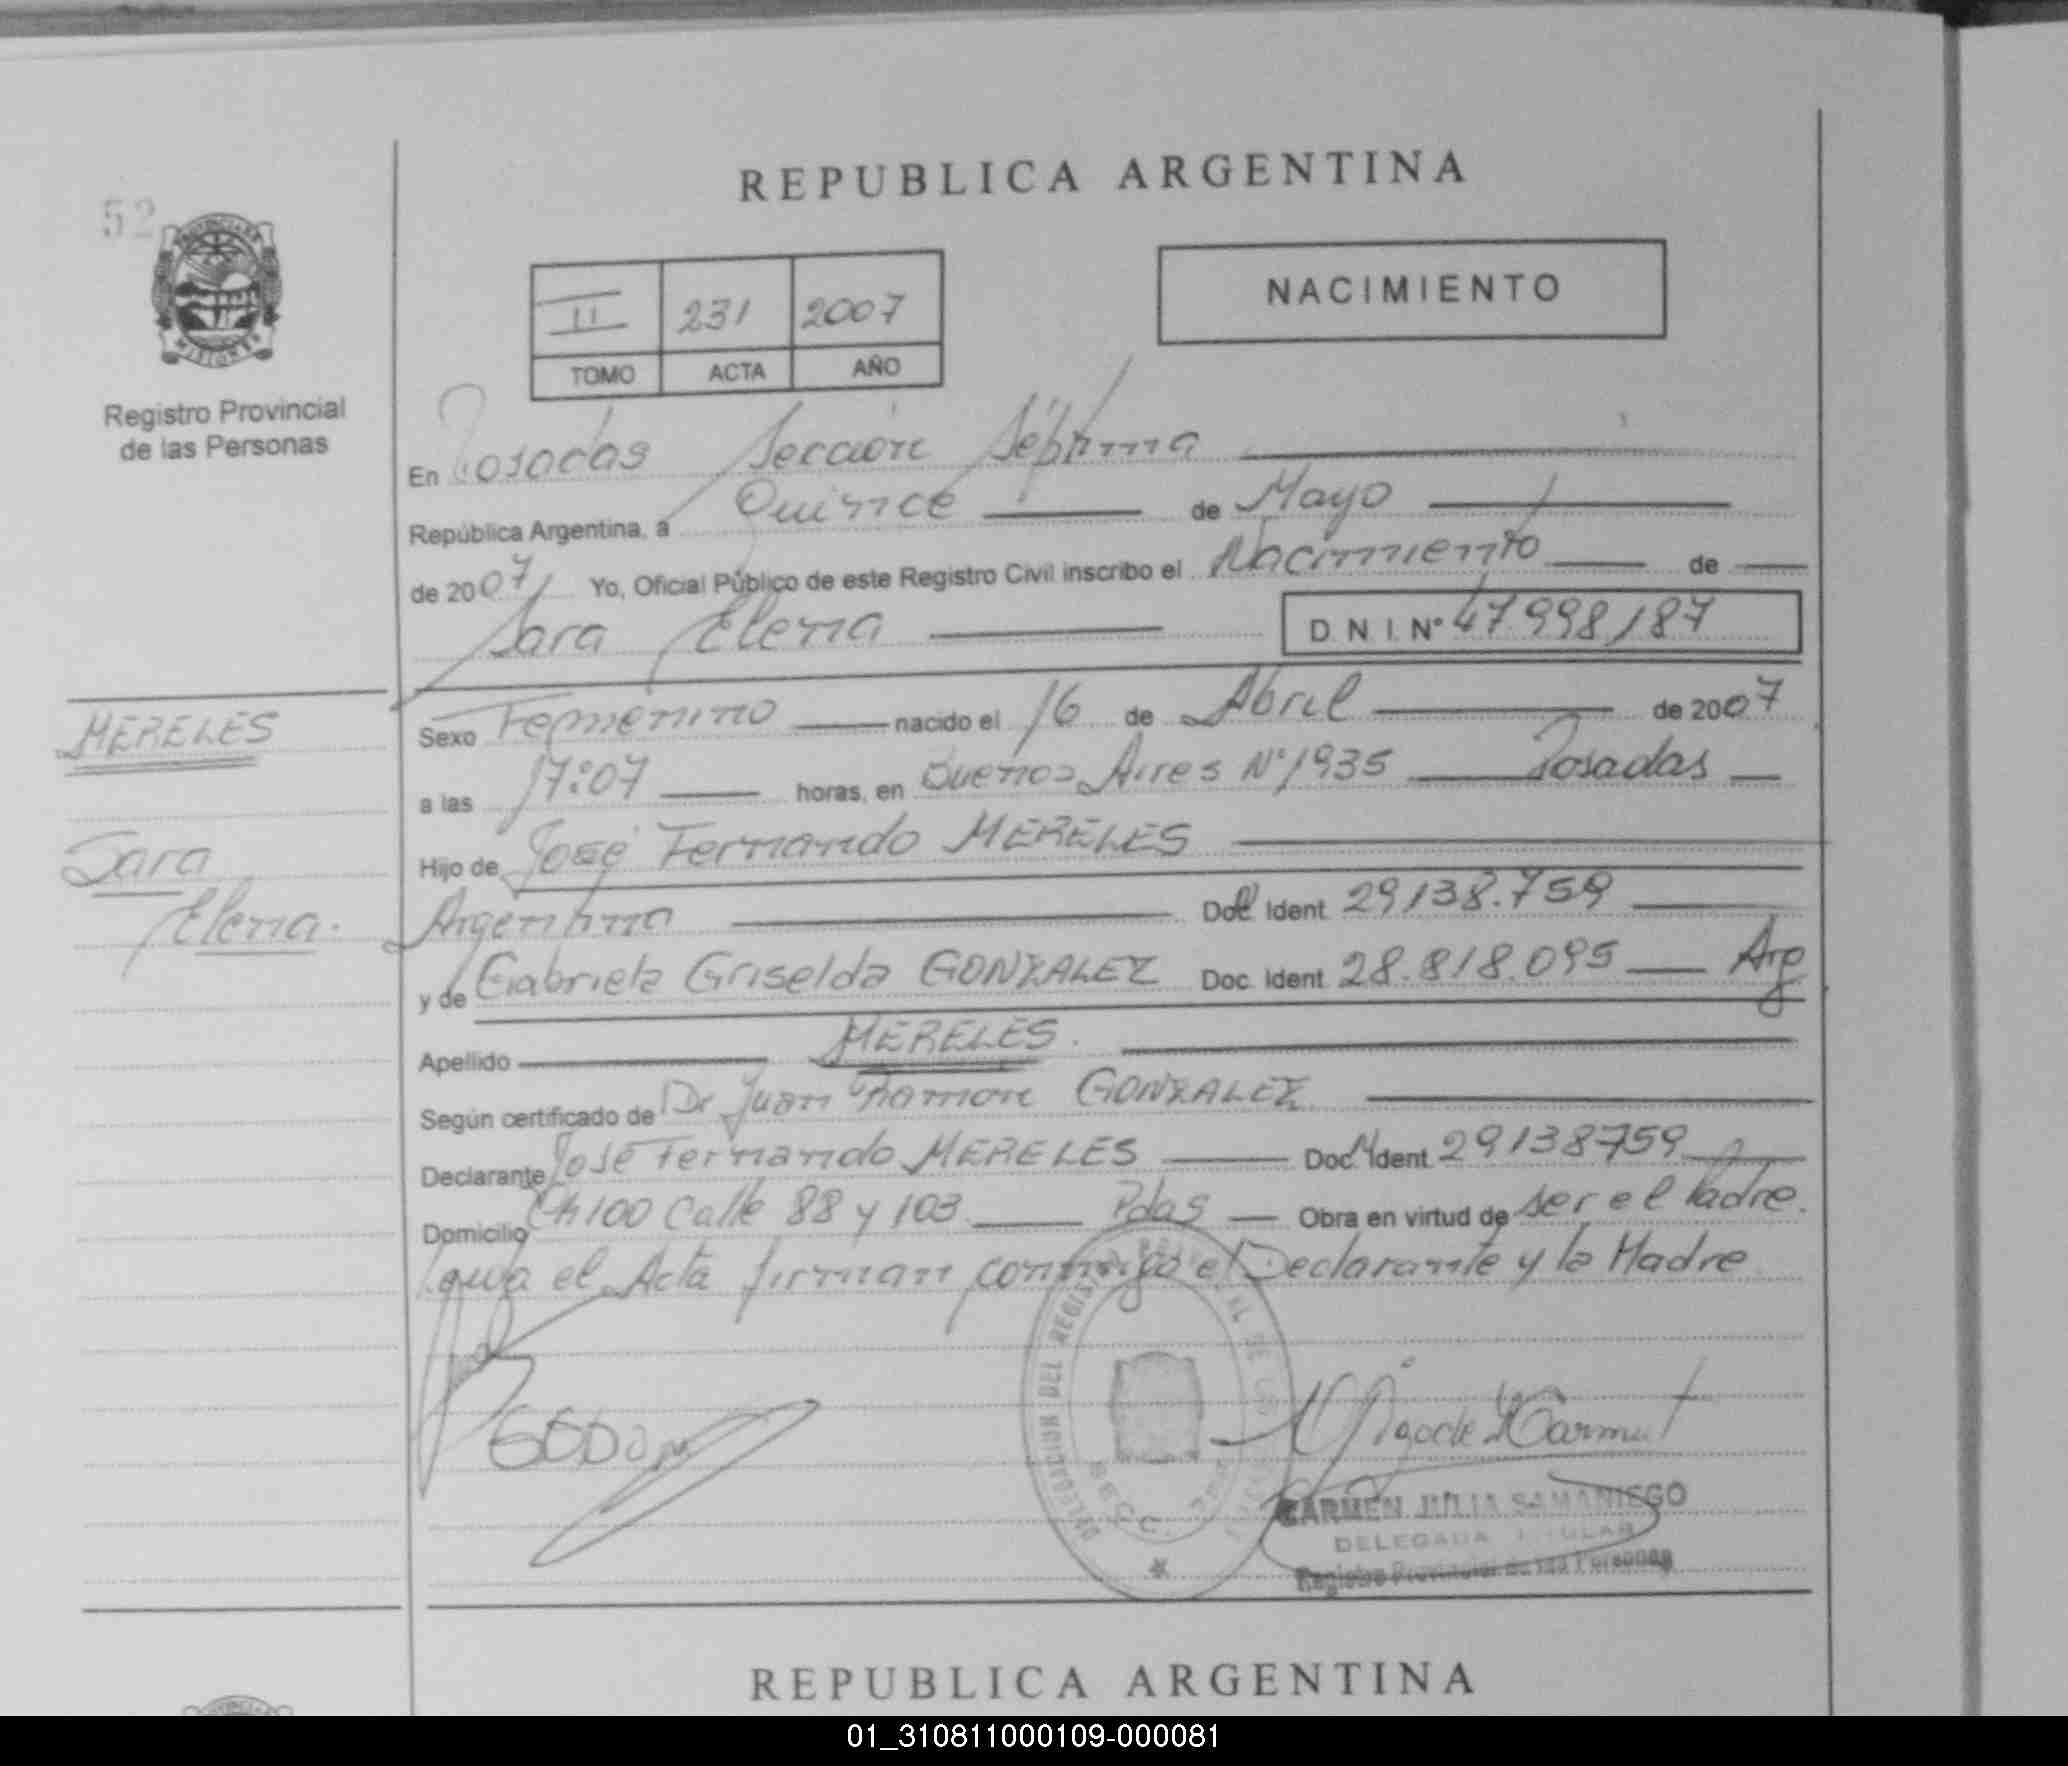 REPUBLICA ARGENTINA
52
PROVINCIA DE
MISIONES
Registro Provincial
de las Personas
II 231 2007
TOMO ACTA AÑO
NACIMIENTO
En Posadas Sección Séptima
República Argentina, a Quince de Mayo
de 2007 Yo, Oficial Público de este Registro Civil inscribo el Nacimiento de
Sara Elena D.N.I. Nº 47.998187
MERELES
Sexo Femenino nacido el 16 de Abril de 2007
a las 17:07 horas, en Buenos Aires Nº 1935 Posadas
Sara
Hijo de José Fernando MERELES
Elena.
Argentina Doc Ident 29138.759
y de Gabriela Griselda GONZALEZ Doc. Ident 28.818.095 Arg
Apellido MERELES.
Según certificado de Dr Juan Ramon GONZALEZ
Declarante José Fernando MERELES Doc. Ident. 29138759
Domicilio Ch 100 Calle 88 y 103 Pdas Obra en virtud de ser el Padre.
el Acta firman conmigo el Declarante y la Madre
DELEGACION DEL REGISTRO PROVINCIAL DE LAS
CARMEN JULIA SAMANIEGO
DELEGADA TITULAR
Registro Provincial de las Personas
REPUBLICA ARGENTINA
01_310811000109-000081